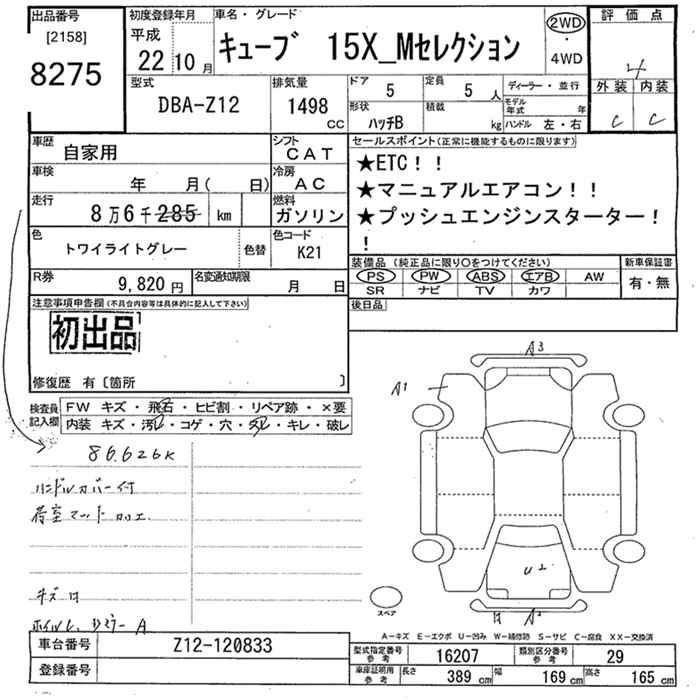 出品番号 初度登録年月 車名・グレード 評価点
[2158] 平成 キューブ 15X_Mセレクション 2WD
8275 22年10月 ・ 4WD 4
型式 排気量 ドア 定員 ディーラー・並行 外装 内装
DBA-Z12 1498 CC 5 5人 モデル年式 年 C C
形状 積載 ハッチB kg ハンドル 左・右
車歴 自家用 シフト CAT セールスポイント(正常に機能するものに限ります)
車検 年 月( 日) 冷房 AC ★ETC!!
走行 8万6千285 km 燃料 ガソリン ★マニュアルエアコン!!
★プッシュエンジンスターター!
!
色 トワイライトグレー 色替 色コード K21
装備品(純正品に限り○をつけてください) 新車保証書
PS PW ABS エアB AW 有・無
SR ナビ TV カワ
R券 9,820円 名変通知期限 月 日
後日品
注意事項申告欄(不具合内容等は具体的に記入して下さい)
初出品
修復歴 有〔箇所 〕
検査員記入欄 FW キズ・飛石・ヒビ割・リペア跡・×要
内装 キズ・汚レ・コゲ・穴・スレ・キレ・破レ
86.626K
ハンドルカバー付
荷室マット加工
キズ
A
A3
A1
U2
A2
スペア
A-キズ E-エクボ U-凹み W-補修跡 S-サビ C-腐食 XX-交換済
車台番号 Z12-120833
登録番号
型式指定番号 参考 16207 類別区分番号 参考 29
車庫証明用 参考 長さ 389 cm 幅 169 cm 高さ 165 cm